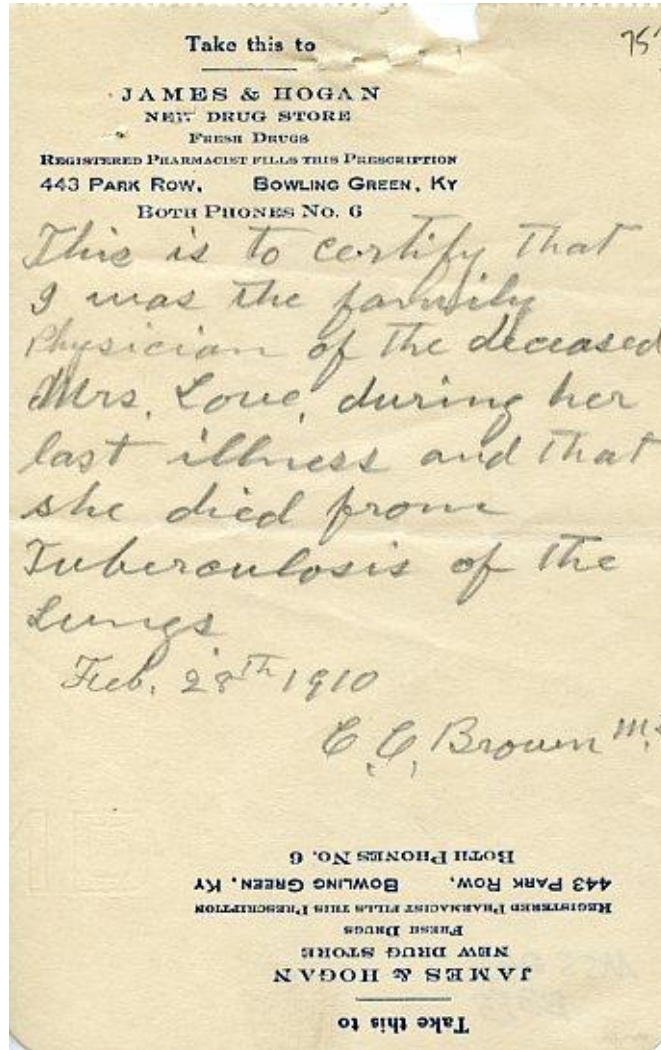 Take this to
JAMES & HOGAN
NEW DRUG STORE
FRESH DRUGS
REGISTERED PHARMACIST FILLS THIS PRESCRIPTION
443 PARK ROW, BOWLING GREEN, KY
BOTH PHONES No. 6
This is to certify that
I was the family
Physician of the deceased
Mrs. Love, during her
last illness and that
she died from
Tuberculosis of the
Lungs.
Feb. 28th 1910
C. C. Brown
BOTH PHONES No. 6
443 PARK ROW, BOWLING GREEN, KY
REGISTERED PHARMACIST FILLS THIS PRESCRIPTION
FRESH DRUGS
NEW DRUG STORE
JAMES & HOGAN
Take this to